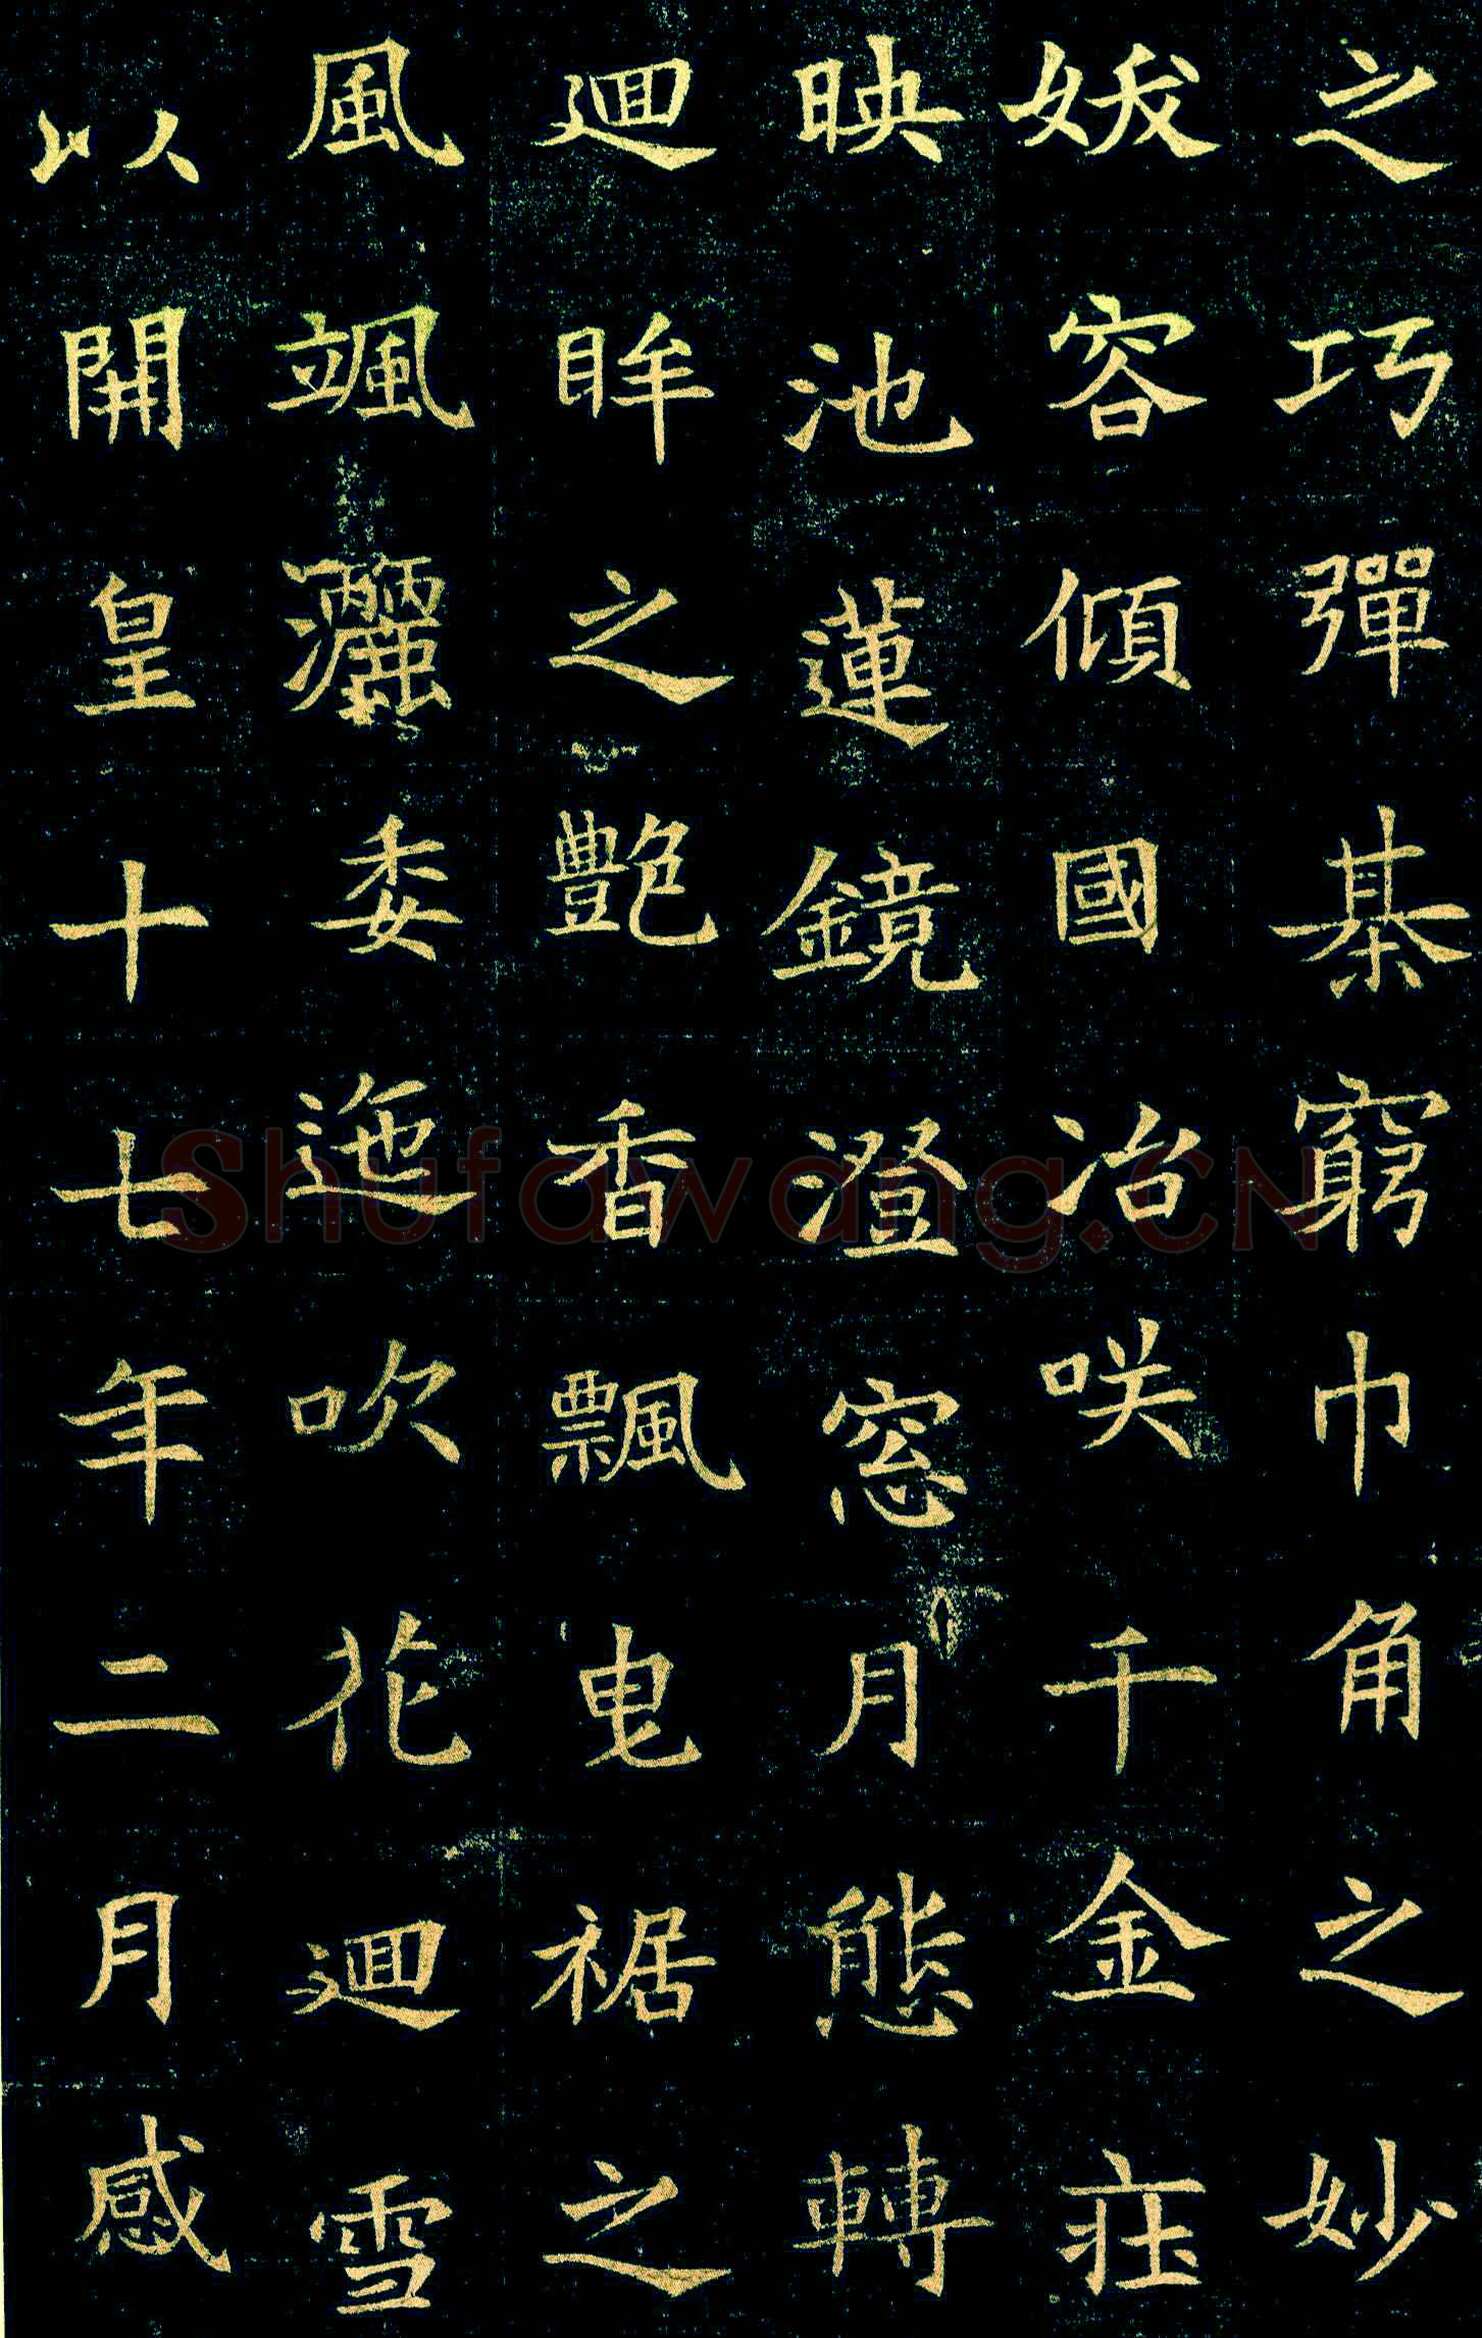 之巧彈棊窮巾角之妙
妭容傾國冶咲千金莊
映池蓮鏡澄窓月態轉
迴眸之艷香飄曵裾之
風颯灑委迤吹花迴雪
以開皇十七年二月感
Shufawang.CN